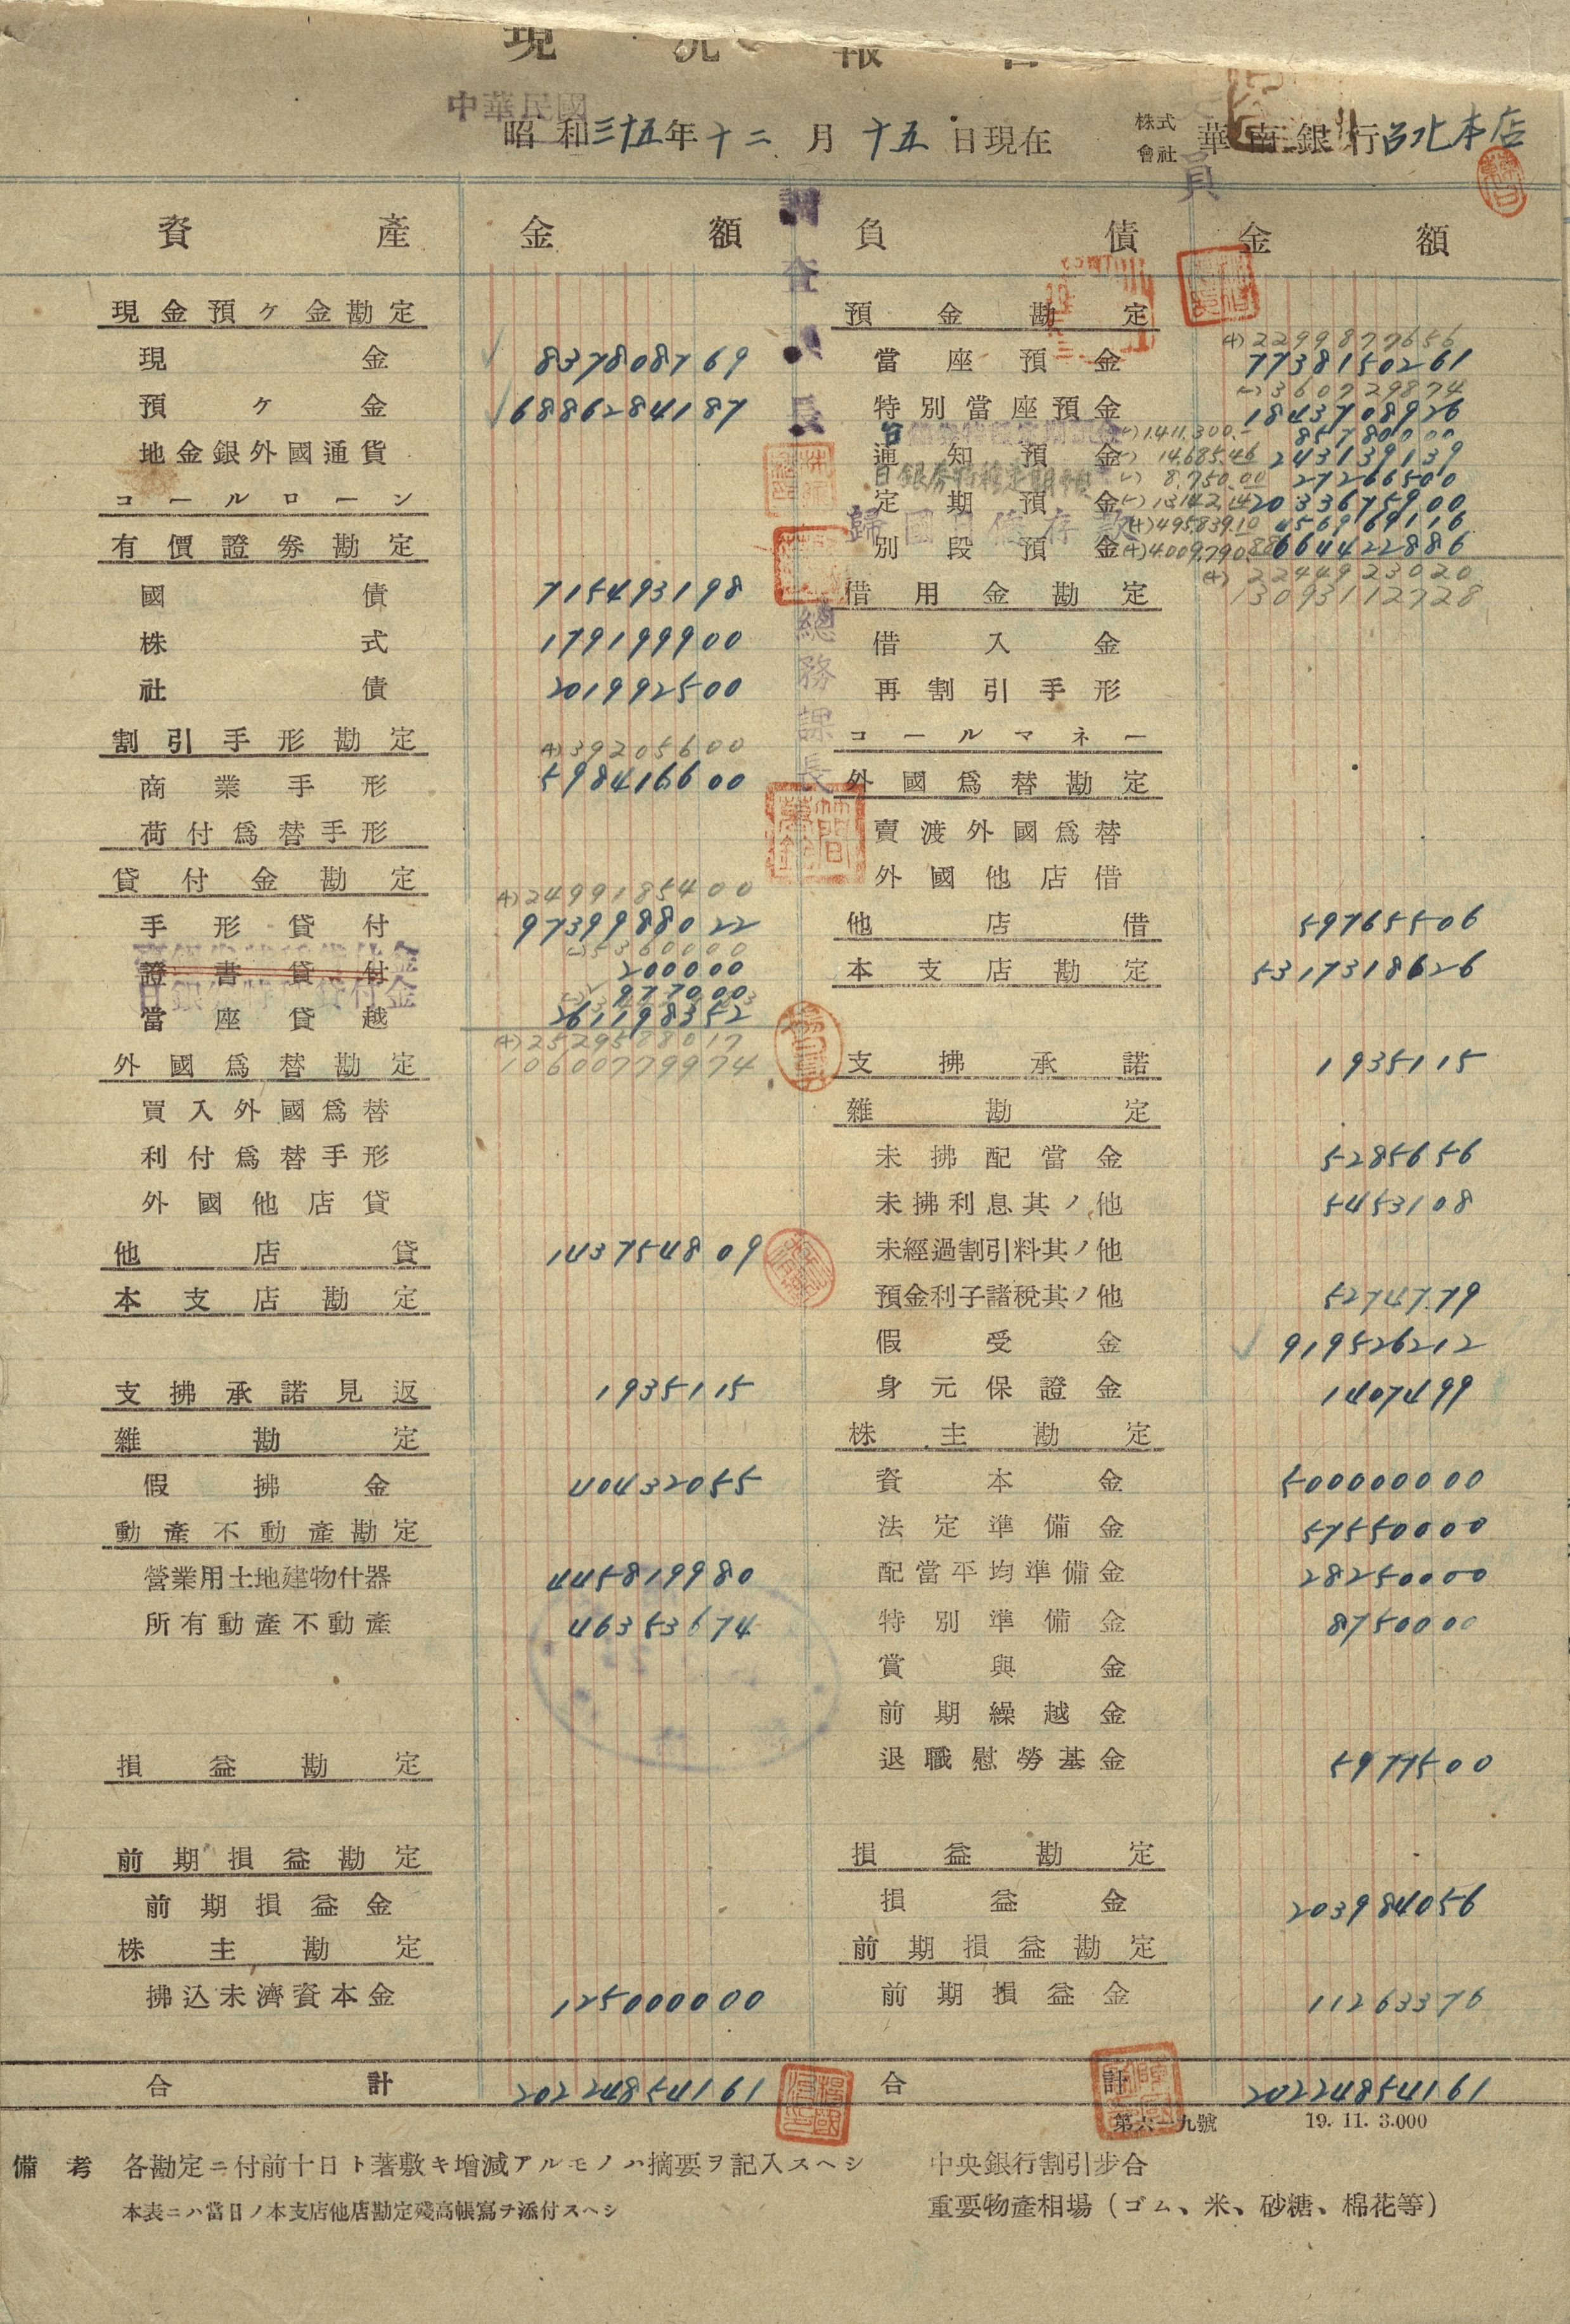 現況報告
中華民國
昭和三十五年十二月十五日現在
株式會社華南銀行台北本店
員
資產 金額 負債 金額
調查課長
總務課長
現金預ケ金勘定
現金 837808769
預ケ金 6886284187
地金銀外國通貨
コールローン
有價證券勘定
國債 715493198
株式 179199900
社債 201992500
割引手形勘定
(+)39205600
商業手形 598416600
荷付爲替手形
貸付金勘定
(+)2499185400
手形貸付 9739988022
(-)5360000
證書貸付 200000
日銀 貸付金 977000
當座貸越 261198352
(+)2529588017
10600779974
外國爲替勘定
買入外國爲替
利付爲替手形
外國他店貸
他店貸 143754809
本支店勘定
支拂承諾見返 1935115
雜勘定
假拂金 40432055
動產不動產勘定
營業用土地建物什器 445819980
所有動產不動產 46353674
損益勘定
前期損益勘定
前期損益金
株主勘定
拂込未濟資本金 125000000
合計 20224854161
預金勘定
(+)2299877656
當座預金 7738150261
(-)360729874
特別當座預金 1843708926
(-)1,411,300.- 85780000
通知預金 (-)14,685.46 243139139
(-)8,750.00 27266500
定期預金 (-)13,142.14 2033675900
歸國日僑存款 (+)495,839.10 456969116
別段預金 (+)4,009,790.88 664422886
(+)2244923020
13093112728
借用金勘定
借入金
再割引手形
コールマネー
外國爲替勘定
賣渡外國爲替
外國他店借
他店借 59765506
本支店勘定 5317318626
支拂承諾 1935115
雜勘定
未拂配當金 5285656
未拂利息其ノ他 5453108
未經過割引料其ノ他
預金利子諸稅其ノ他 5274779
假受金 919526212
身元保證金 1407499
株主勘定
資本金 500000000
法定準備金 57550000
配當平均準備金 28250000
特別準備金 8750000
賞與金
前期繰越金
退職慰勞基金 5977500
損益勘定
損益金 203984056
前期損益勘定
前期損益金 11263376
合計 20224854161
第六一九號 19. 11. 3.000
備考 各勘定ニ付前十日ト著敷キ增減アルモノハ摘要ヲ記入スヘシ
本表ニハ當日ノ本支店他店勘定殘高帳寫ヲ添付スヘシ
中央銀行割引步合
重要物產相場（ゴム、米、砂糖、棉花等）